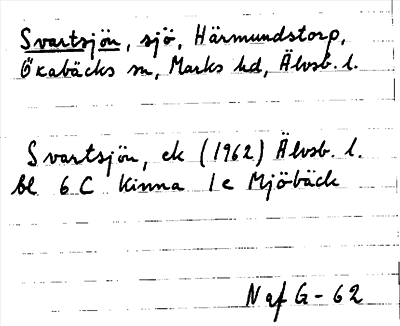 Svartsjön, sjö, Härmundstorp,
Öxabäcks sn, Marks hd, Älvsb. l.
Svartsjön, ek (1962) Älvsb. l.
bl 6 C Kinna 1 e Mjöbäck
NafG-62